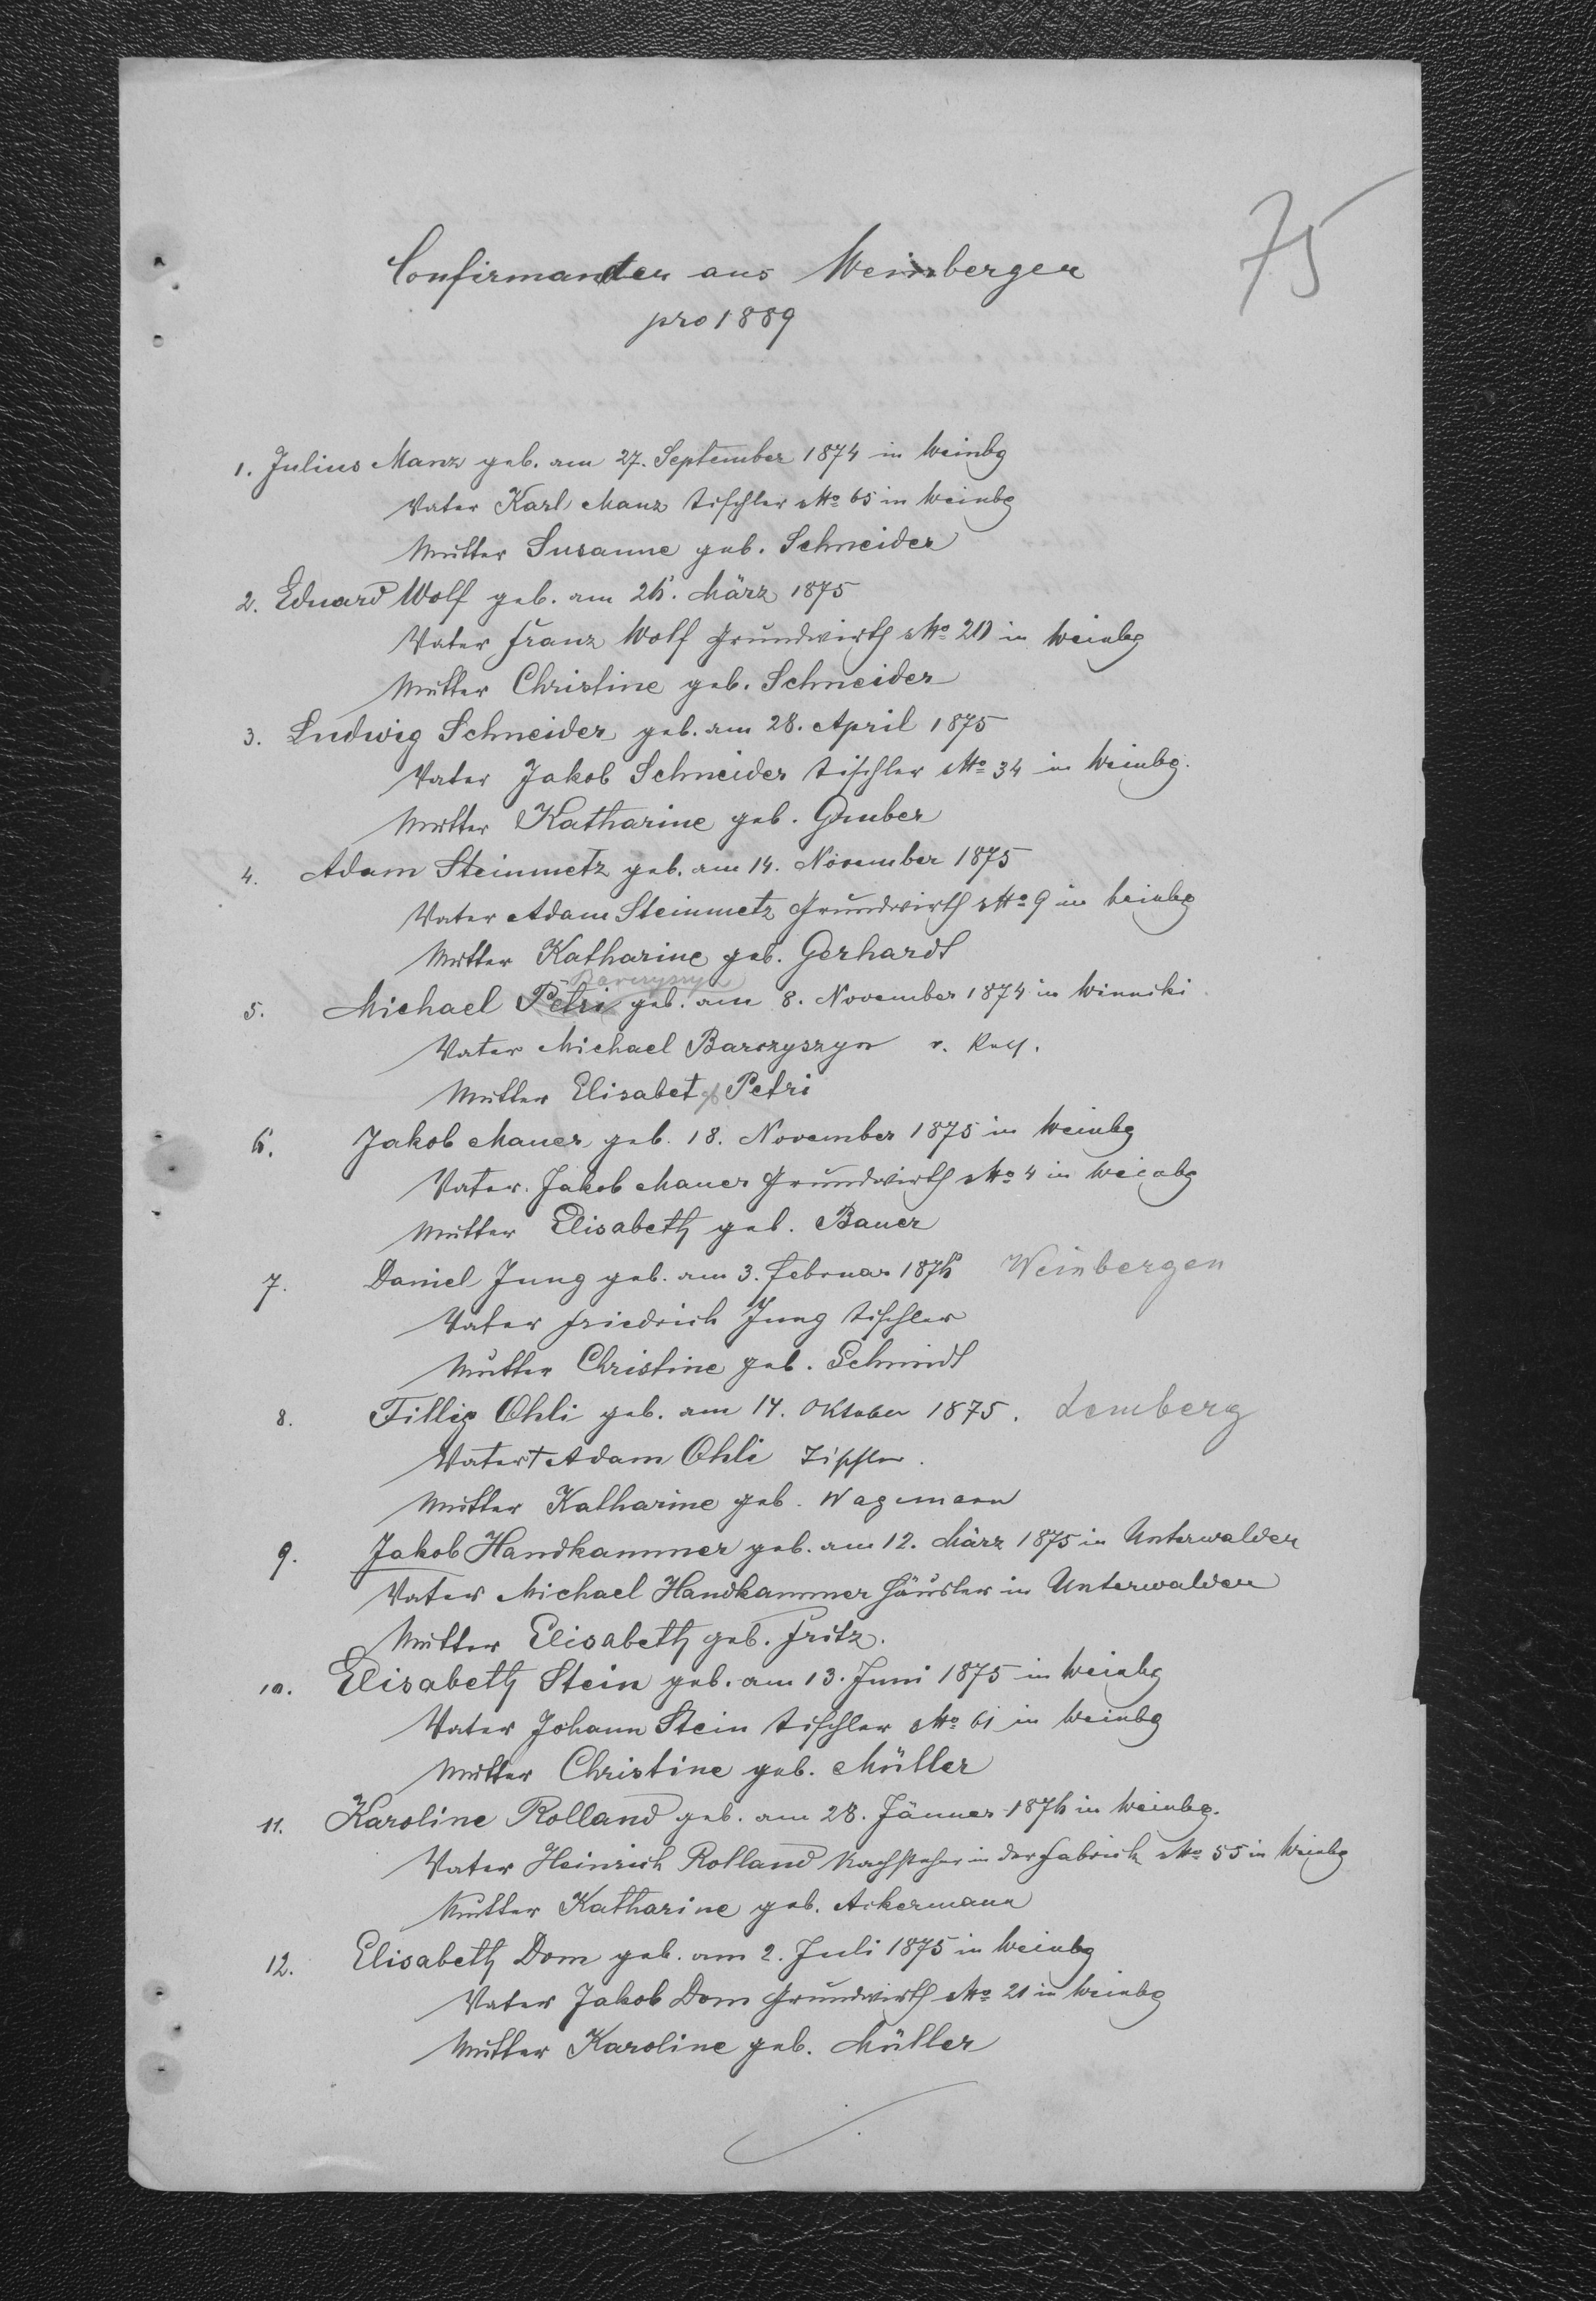 75
Confirmanden aus Weinbergen
pro 1889
1. Julius Manz geb. am 27. September 1874 in Weinbg
Vater Karl Manz Tischler No 65 in Weinbg
Mutter Susanne geb. Schneider
2. Eduard Wolf geb. am 26. März 1875
Vater Franz Wolf Grundwirth No in Weinbg
Mutter Christine geb. Schneider
3. Ludwig Schneider geb. am 28. April 1875
Vater Jakob Schneider Tischler No 34 in Weinbg.
Mutter Katharine geb. Gruber
4. Adam Steinmetz geb. am 14. November 1875
Vater Adam Steinmetz Grundwirth No 9 in Weinbg
Mutter Katharine geb. Gerhardt
Barczyszyn
5. Michael Petri geb. am 8. November 1874 in Winniki
Vater Michael Barszyszyn r. kath.
Mutter Elisabet gb Petri
6. Jakob Mauer geb. 18. November 1875 in Weinbg
Vater Jakob Mauer Grundwirth No 4 in Weinbg
Mutter Elisabeth geb. Bauer
7. Daniel Jung geb. am 3. Februar 1876 Weinbergen
Vater Friedrich Jung Tischler
Mutter Christine geb. Schmidt
8. Fillip Ohli geb. am 14. Oktober 1875. Lemberg
Vater † Adam Ohli Tischler.
Mutter Katharine geb. Wagemann
9. Jakob Handkammer geb. am 12. März 1875 in Unterwalden
Vater Michael Handkammer Häusler in Unterwalden
Mutter Elisabeth geb. Fritz.
10. Elisabeth Stein geb. am 13. Juni 1875 in Weinbg
Vater Johann Stein Tischler No 61 in Weinbg
Mutter Christine geb. Müller
11. Karoline Rolland geb. am 28. Jänner 1876 in Weinbg.
Vater Heinrich Rolland in der Fabrick No 55 in Weinbg
Mutter Katharine geb. Ackermann
12. Elisabeth Dom geb. am 2. Juli 1875 in Weinbg
Vater Jakob Dom Grundwirth No 21 in Weinbg
Mutter Karoline geb. Müller